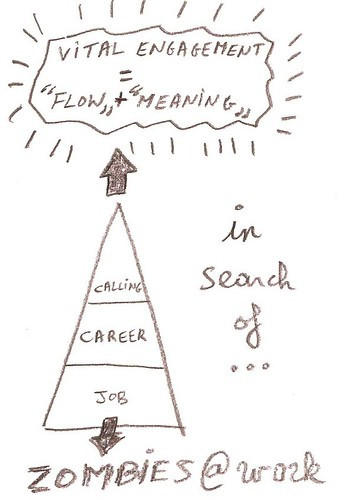 VITAL ENGAGEMENT
=
"FLOW„ + "MEANING„
in
search
of
...
CALLING
CAREER
JOB
ZOMBIES @ work